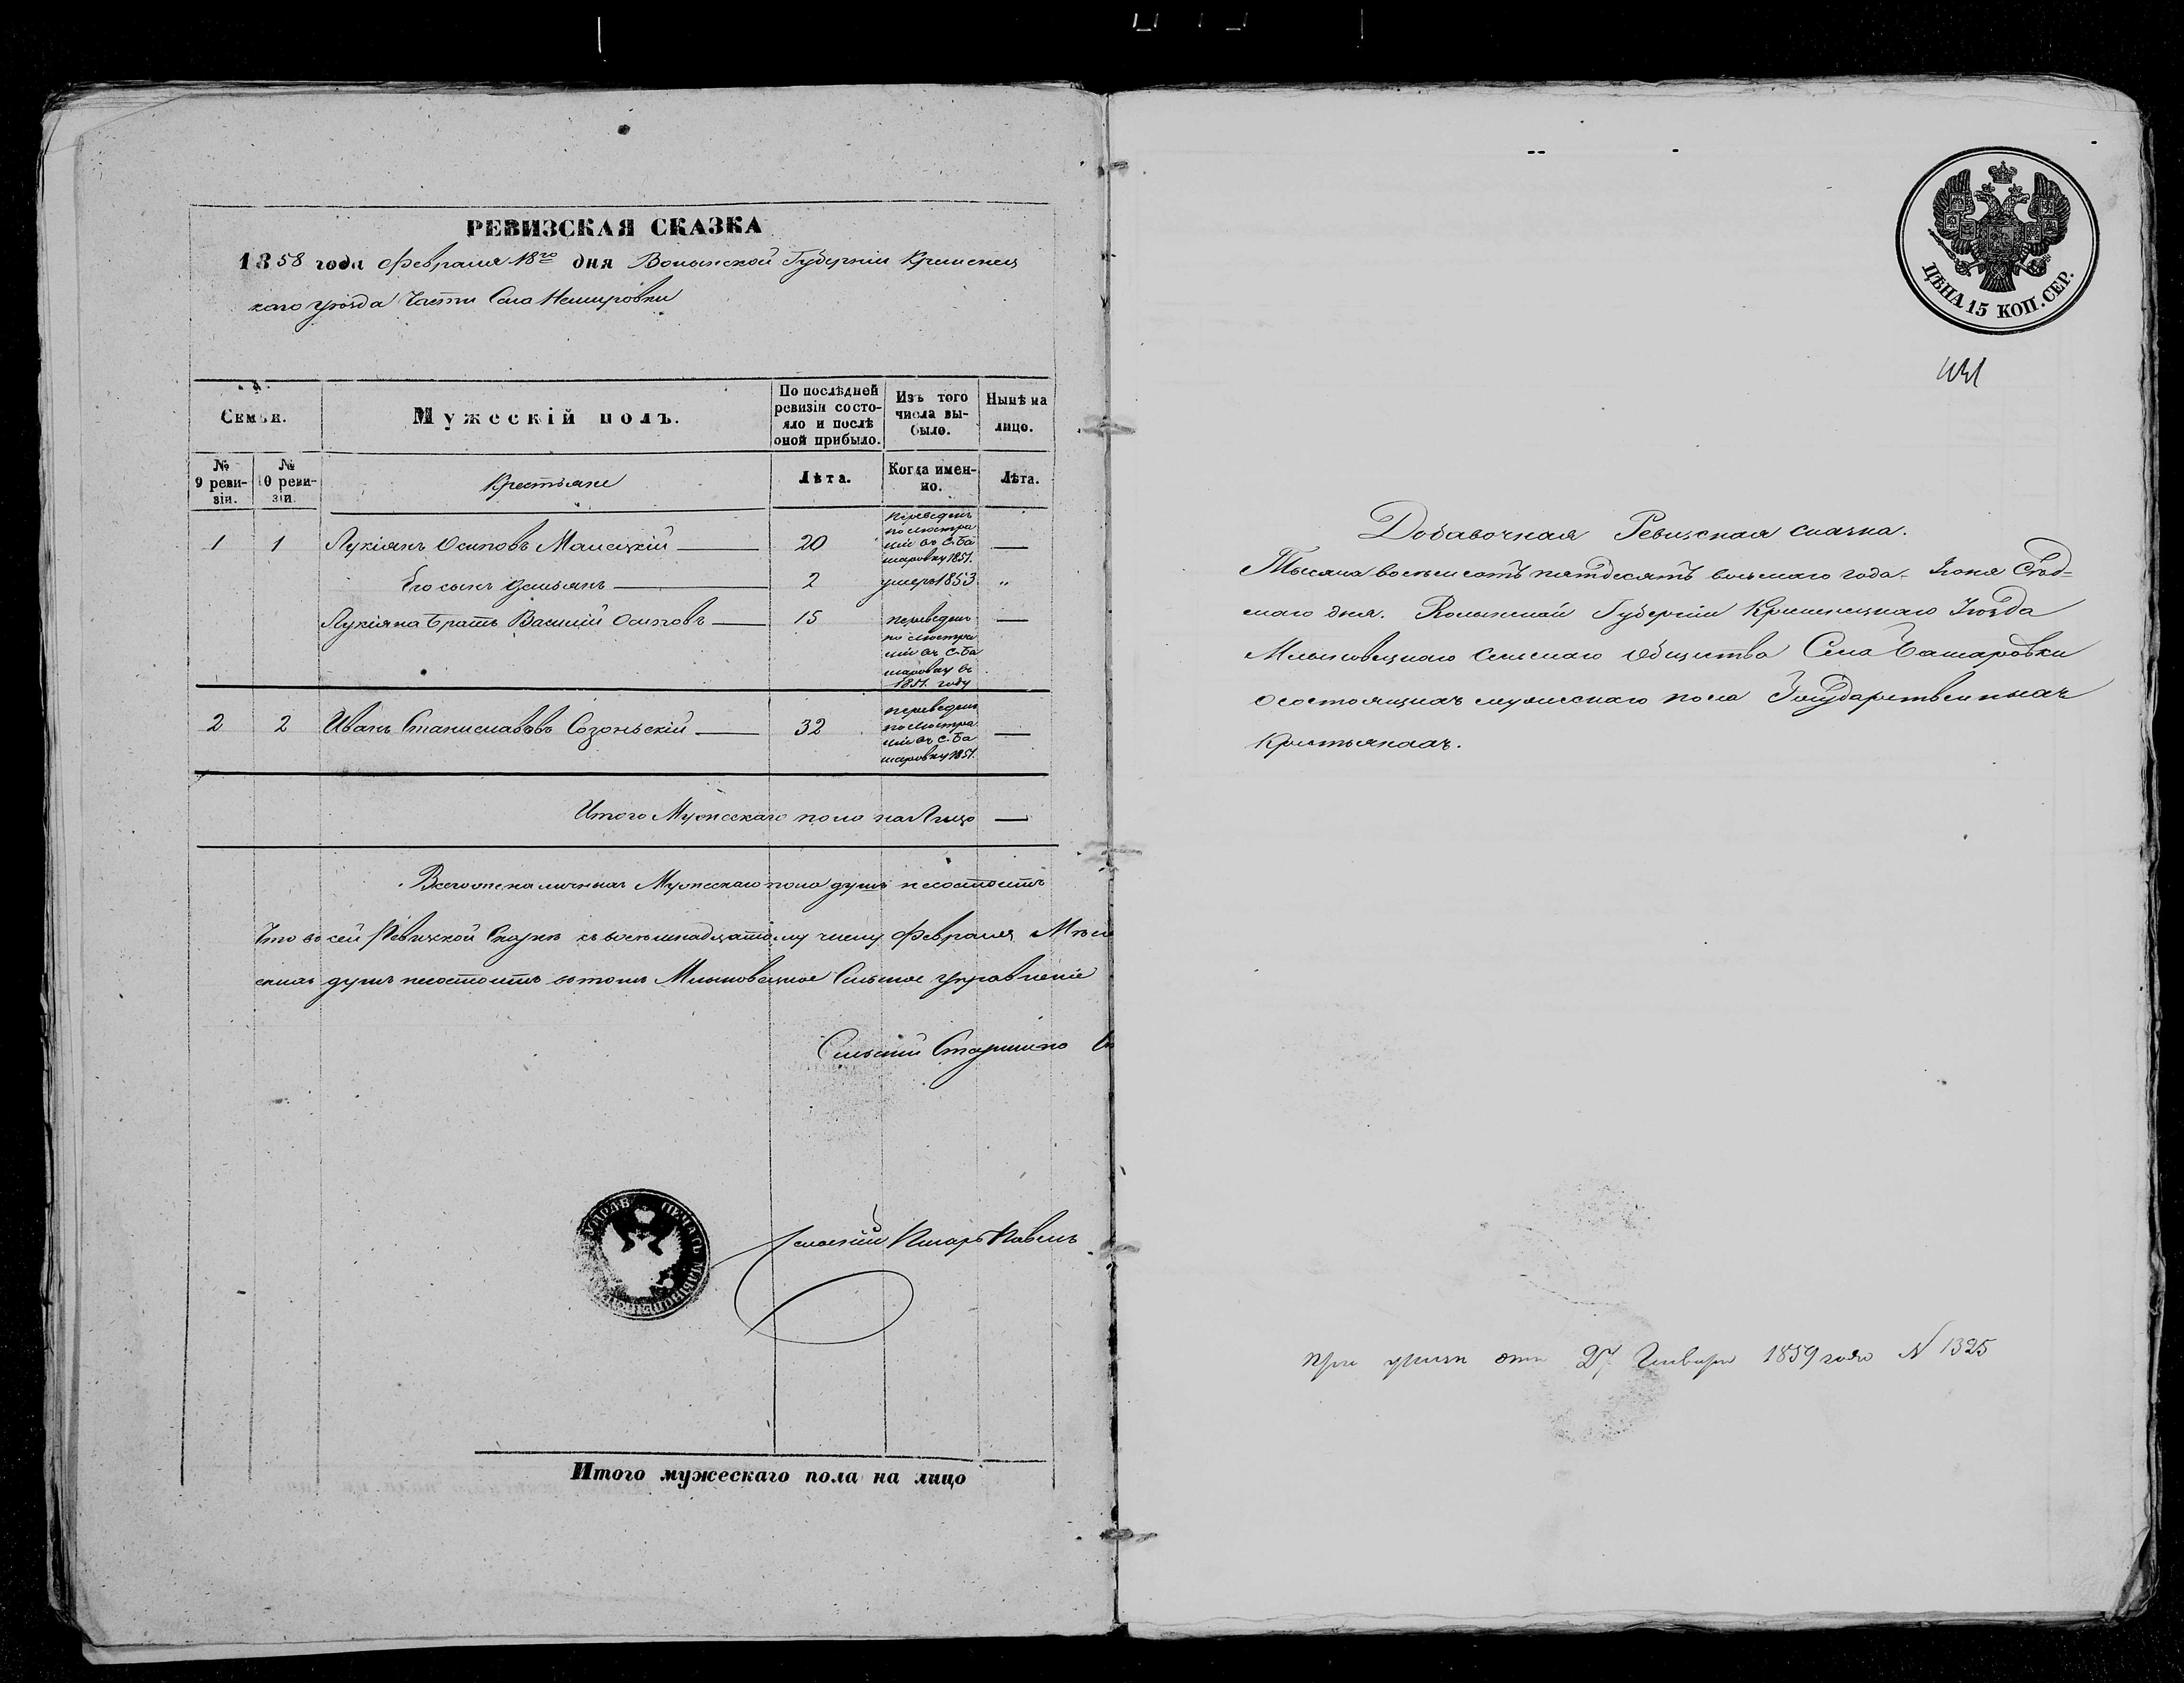 РЕВИЗСКАЯ СКАЗКА
1858 года Февраля 18го дня Волынской Губерніи Кременец
каго уѣзда Части Села Немировки
Семьи.
Мужескій полъ.
По послѣдней ревизіи состояло и послѣ оной прибыло.
Изъ того числа выбыло.
Нынѣ на лицо.
№ 9 ревизіи.
№ 10 ревизіи.
Крестьяне
Лѣта.
Когда именно.
Лѣта.
1 1 Лукіянъ Осиповъ 20 переведенъ по люстраціи въ С. Башаровку 1851. —
Его сынъ Демьянъ 2 умеръ 1853 „
Лукіяна братъ Василій Осиповъ 15 переведенъ по люстраціи въ С. Башаровку въ 1851. году —
2 2 Иванъ Станиславовъ Созоньскій 32 переведенъ по люстраціи въ С. Башаровку 1851. —
Итого Мужескаго пола на Лицо —
Всего же наличныхъ Мужескаго пола душъ несостоитъ
Что во сей Ревизской Сказкѣ къ восемнадцатому числу Февраля
душъ несостоитъ въ томъ Млыновецкое Сельское Управленіе
Сельскій Старшина
Сельскій Писарь Павелъ
Итого мужескаго пола на лицо
ЦѢНА 15 КОП. СЕР.
Добавочная Ревизская сказка.
Тысяча восемьсотъ пятдесятъ восьмаго года. Іюня Сѣд-
маго дня. Волынской Губерніи Кременецкаго Уѣзда
Млыновецкаго Сельскаго Общества Села Башаровки
о состоящихъ мужескаго пола Государственныхъ
Крестьянахъ.
при отн 27 Генваря 1859 года N 1325